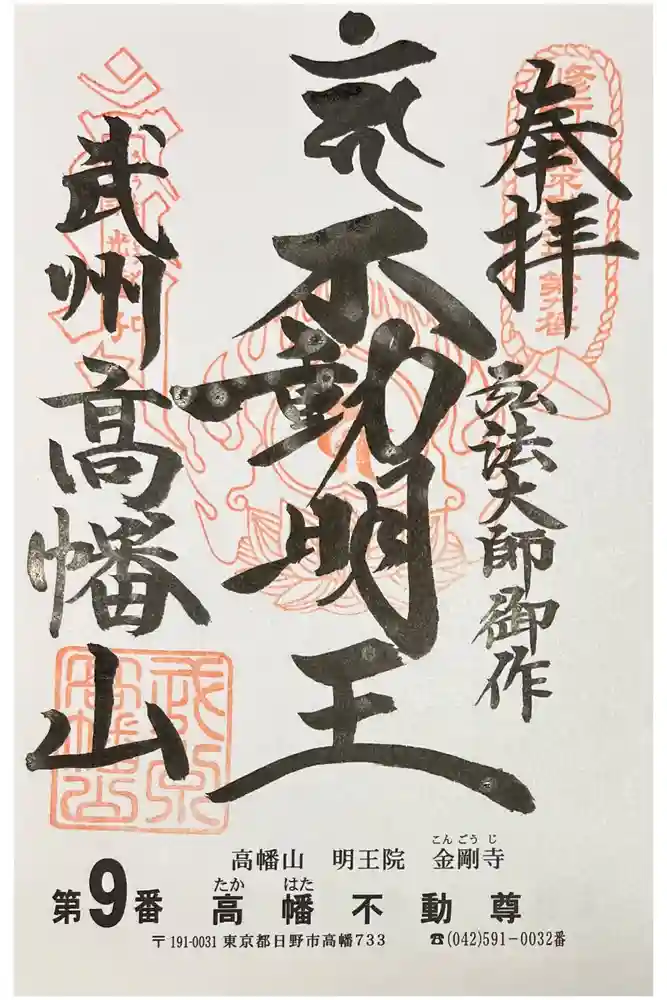 奉拝
弘法大師御作
不動明王
武州
高幡山
高幡山 明王院 金剛寺
こんごうじ
第9番 高幡不動尊
たか はた
〒191-0031 東京都日野市高幡733 ☎(042)591-0032番